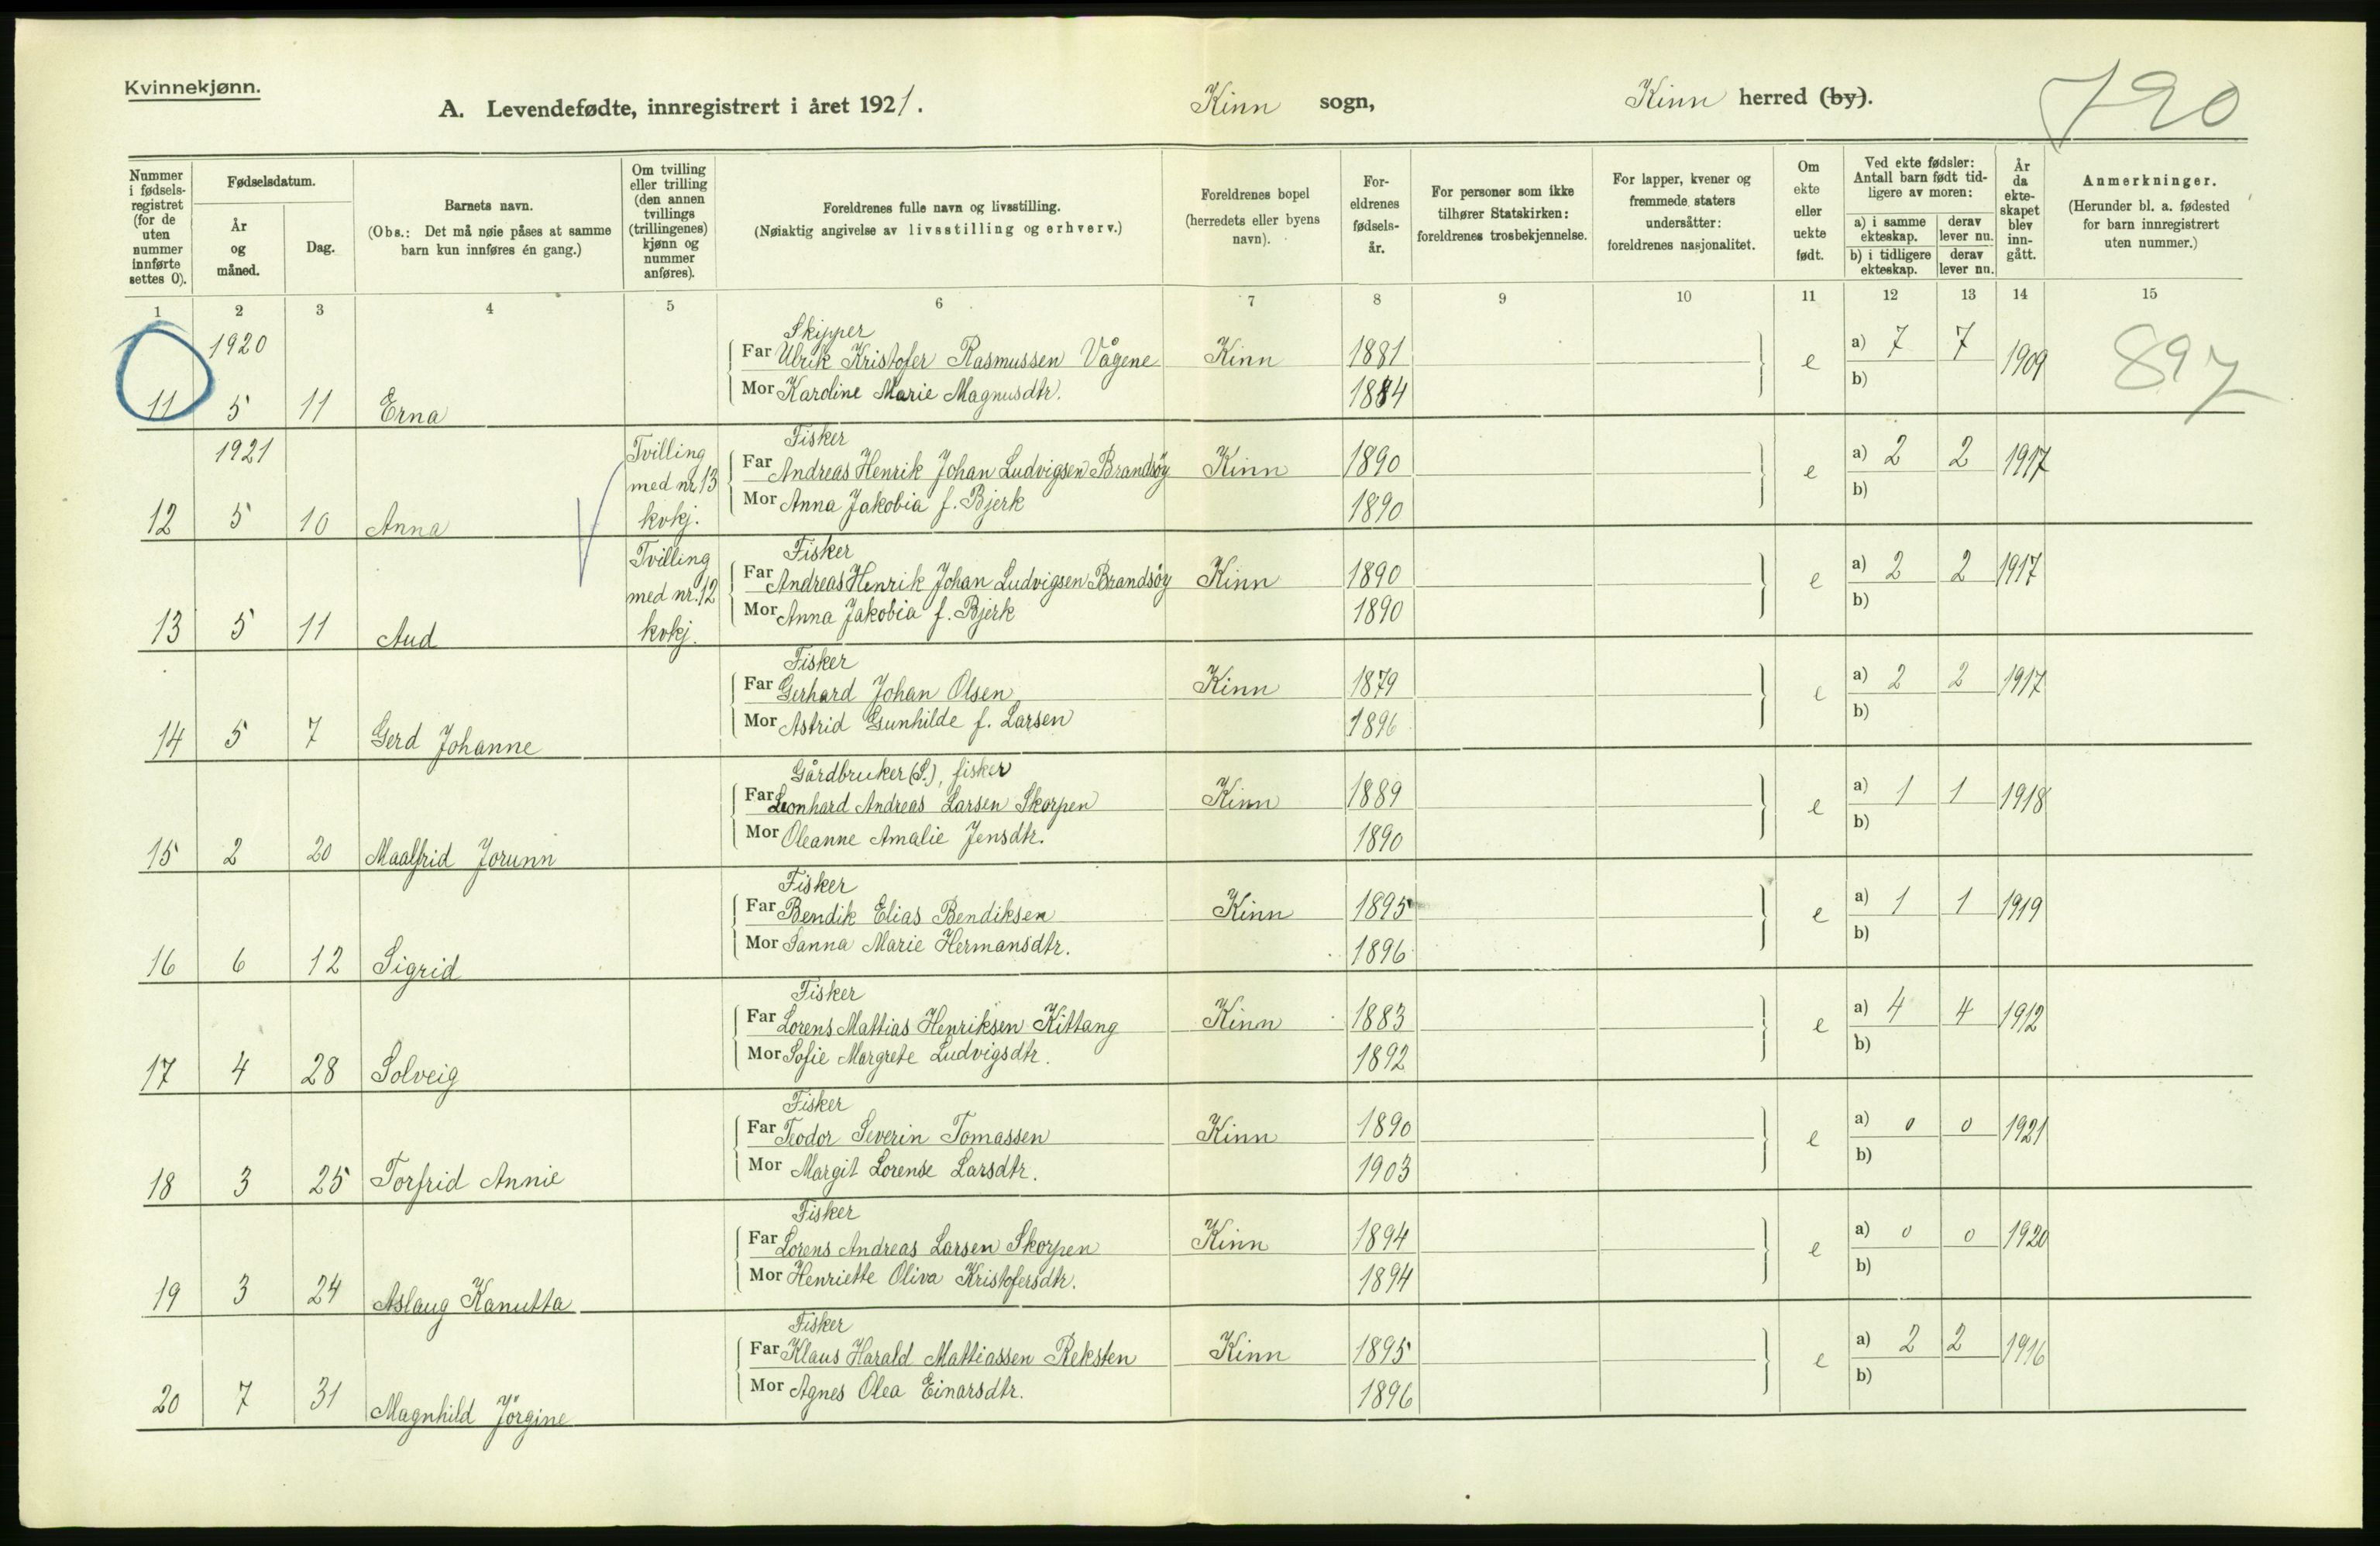 Kvinnekjønn.
A. Levendefødte, innregistrert i året 1921.
Kinn sogn,
Kinn herred (by).
790
Nummer i fødsels-registret (for de uten nummer innførte settes 0).
Fødselsdatum.
År og måned.
Dag.
Barnets navn.
(Obs.: Det må nøie påses at samme barn kun innføres én gang.)
Om tvilling eller trilling (den annen tvillings (trillingenes) kjønn og nummer anføres).
Foreldrenes fulle navn og livsstilling.
(Nøiaktig angivelse av livsstilling og erhverv.)
Foreldrenes bopel (herredets eller byens navn).
For-eldrenes fødsels-år.
For personer som ikke tilhører Statskirken: foreldrenes trosbekjennelse.
For lapper, kvener og fremmede staters undersåtter: foreldrenes nasjonalitet.
Om ekte eller uekte født.
Ved ekte fødsler: Antall barn født tid-ligere av moren:
a) i samme ekteskap.
derav lever nu.
b) i tidligere ekteskap.
derav lever nu.
År da ekte-skapet blev inn-gått.
Anmerkninger.
(Herunder bl. a. fødested for barn innregistrert uten nummer.)
1 2 3 4 5 6 7 8 9 10 11 12 13 14 15
1920
Skipper
Far Ulrik Kristofer Rasmussen Vågene Kinn 1881 e a) 7 7 1909 897
11 5 11 Erna Mor Karoline Marie Magnusdtr. 1884 b)
1921 Tvilling med nr 13 kvkj.
Fisker
Far Andreas Henrik Johan Ludvigsen Brandsøy Kinn 1890 e a) 2 2 1917
12 5 10 Anna Mor Anna Jakobia f. Bjerk 1890 b)
Tvilling med nr. 12 kvkj.
Fisker
Far Andreas Henrik Johan Ludvigsen Brandsøy Kinn 1890 e a) 2 2 1917
13 5 11 Aud Mor Anna Jakobia f. Bjerk 1890 b)
Fisker
Far Gerhard Johan Olsen Kinn 1879 e a) 2 2 1917
14 5 7 Gerd Johanne Mor Astrid Gunhilde f. Larsen 1896 b)
Gårdbruker (S.), fisker
Far Leonhard Andreas Larsen Skorpen Kinn 1889 e a) 1 1 1918
15 2 20 Maalfrid Jorunn Mor Oleanne Amalie Jensdtr. 1890 b)
Fisker
Far Bendik Elias Bendiksen Kinn 1895 e a) 1 1 1919
16 6 12 Sigrid Mor Sanna Marie Hermansdtr. 1896 b)
Fisker
Far Lorens Mattias Henriksen Kittang Kinn 1883 e a) 4 4 1912
17 4 28 Solveig Mor Sofie Margrete Ludvigsdtr. 1892 b)
Fisker
Far Teodor Severin Tomassen Kinn 1890 e a) 0 0 1921
18 3 25 Torfrid Annie Mor Margit Lorense Larsdtr. 1903 b)
Fisker
Far Lorens Andreas Larsen Skorpen Kinn 1894 e a) 0 0 1920
19 3 24 Aslaug Kanutta Mor Henriette Oliva Kristofersdtr. 1894 b)
Fisker
Far Klaus Harald Mattiassen Reksten Kinn 1895 e a) 2 2 1916
20 7 31 Magnhild Jørgine Mor Agnes Olea Einarsdtr. 1896 b)